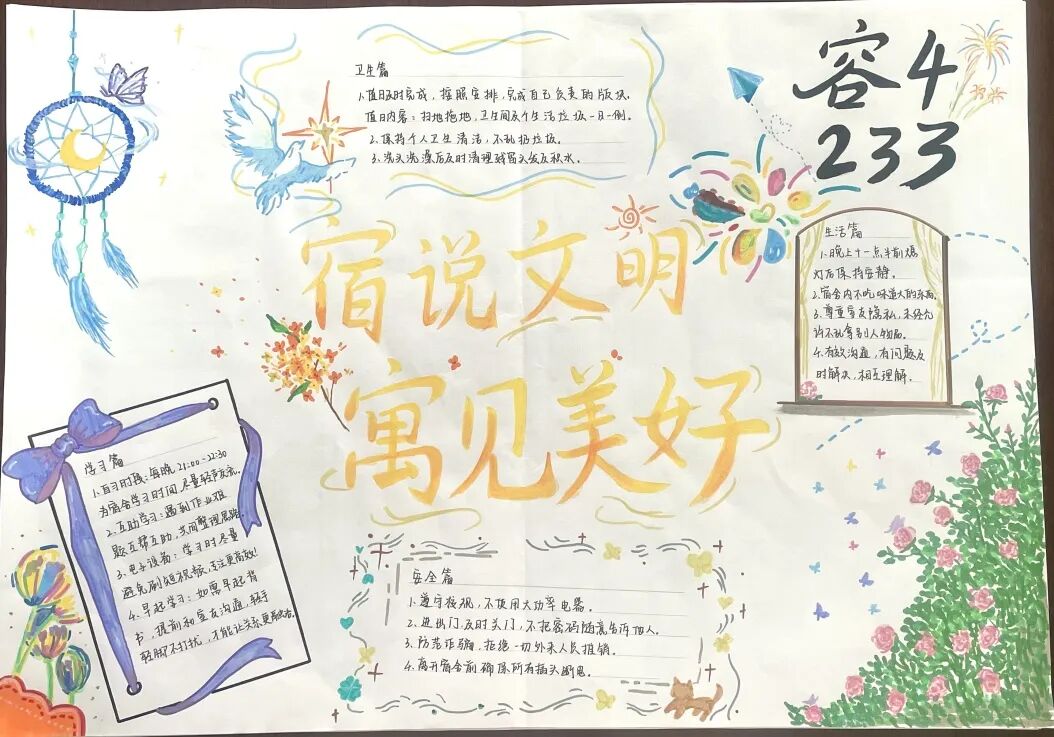 容4
233
卫生篇
1.值日及时完成，按照安排，完成自己负责的版块。
值日内容：扫地拖地，卫生间及个生活垃圾一日一倒。
2.保持个人卫生清洁，不乱扔垃圾。
3.洗头洗澡后及时清理残留头发及积水。
宿说文明
寓见美好
生活篇
1.晚上十一点半前熄
灯后保持安静。
2.宿舍内不吃味道大的东西。
3.尊重室友隐私，未经允
许不乱拿别人物品。
4.有效沟通，有问题及
时解决，相互理解。
学习篇
1.自习时段：每晚21:00-22:30
为宿舍学习时间，尽量轻声交流。
2.互助学习：遇到作业难
题互帮互助，共同整理思路。
3.电子设备：学习时尽量
避免刷短视频，专注更高效！
4.早起学习：如需早起背
书，提前和室友沟通，轻手
轻脚不打扰，才能让关系更融洽。
安全篇
1.遵守校规，不使用大功率电器。
2.进出门及时关门，不把密码随意告诉他人。
3.防范诈骗，拒绝一切外来人员推销。
4.离开宿舍前确保所有插头断电。